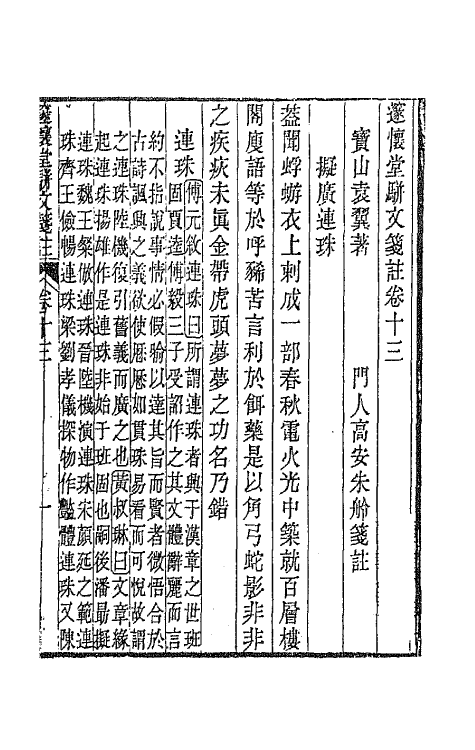 邃懷堂駢文箋註卷十三
寶山袁翼著　門人高安朱舲箋註
擬廣連珠
蓋聞蜉蝣衣上刺成一部春秋電火光中築就百層樓
閣廋語等於呼豨苦言利於餌藥是以角弓蛇影非非
之疾疢未眞金帶虎頭夢夢之功名乃錯
連珠傅元敘連珠曰所謂連珠者興于漢章之世班
固賈逵傅毅三子受詔作之其文體辭麗而言
約不指說事情必假喻以達其旨而賢者微悟合於
古詩諷興之義欲使厯厯如貫珠易看而可悅故謂
之連珠陸機復引舊義而廣之也黃叔琳曰文章緣
起連珠揚雄作是連珠非始于班固也嗣後潘勗擬
連珠魏王粲倣連珠晉陸機演連珠宋顏延之範連
珠齊王儉暢連珠梁劉孝儀探物作豔體連珠又陳
邃懷堂駢文箋註　卷十三　一